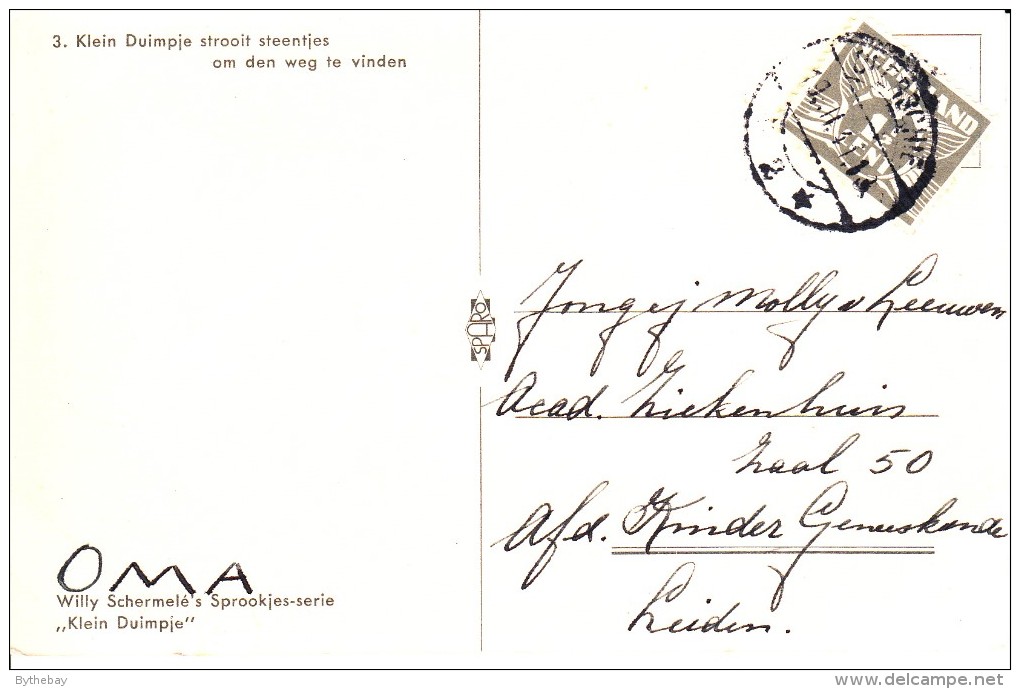 3. Klein Duimpje strooit steentjes
om den weg te vinden
NEDERLAND
CENT
SPARO
Jongej Molly v Leeuwen
Acad. Ziekenhuis
Zaal 50
Afd. Kinder Geneeskunde
Leiden.
OMA
Willy Schermelé's Sprookjes-serie
„Klein Duimpje"
Bythebay
delcampe.net